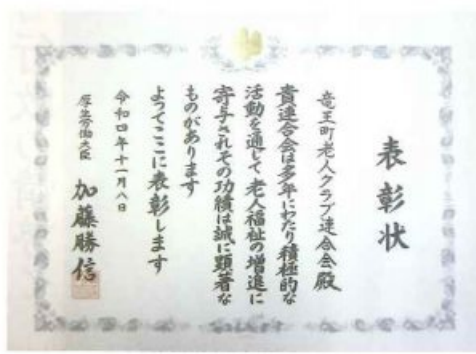 表彰状
竜王町老人クラブ連合会殿
貴連合会は多年にわたり積極的な
活動を通じて老人福祉の増進に
寄与されその功績は誠に顕著な
ものがあります
よってここに表彰します
令和四年十一月八日
厚生労働大臣 加藤勝信